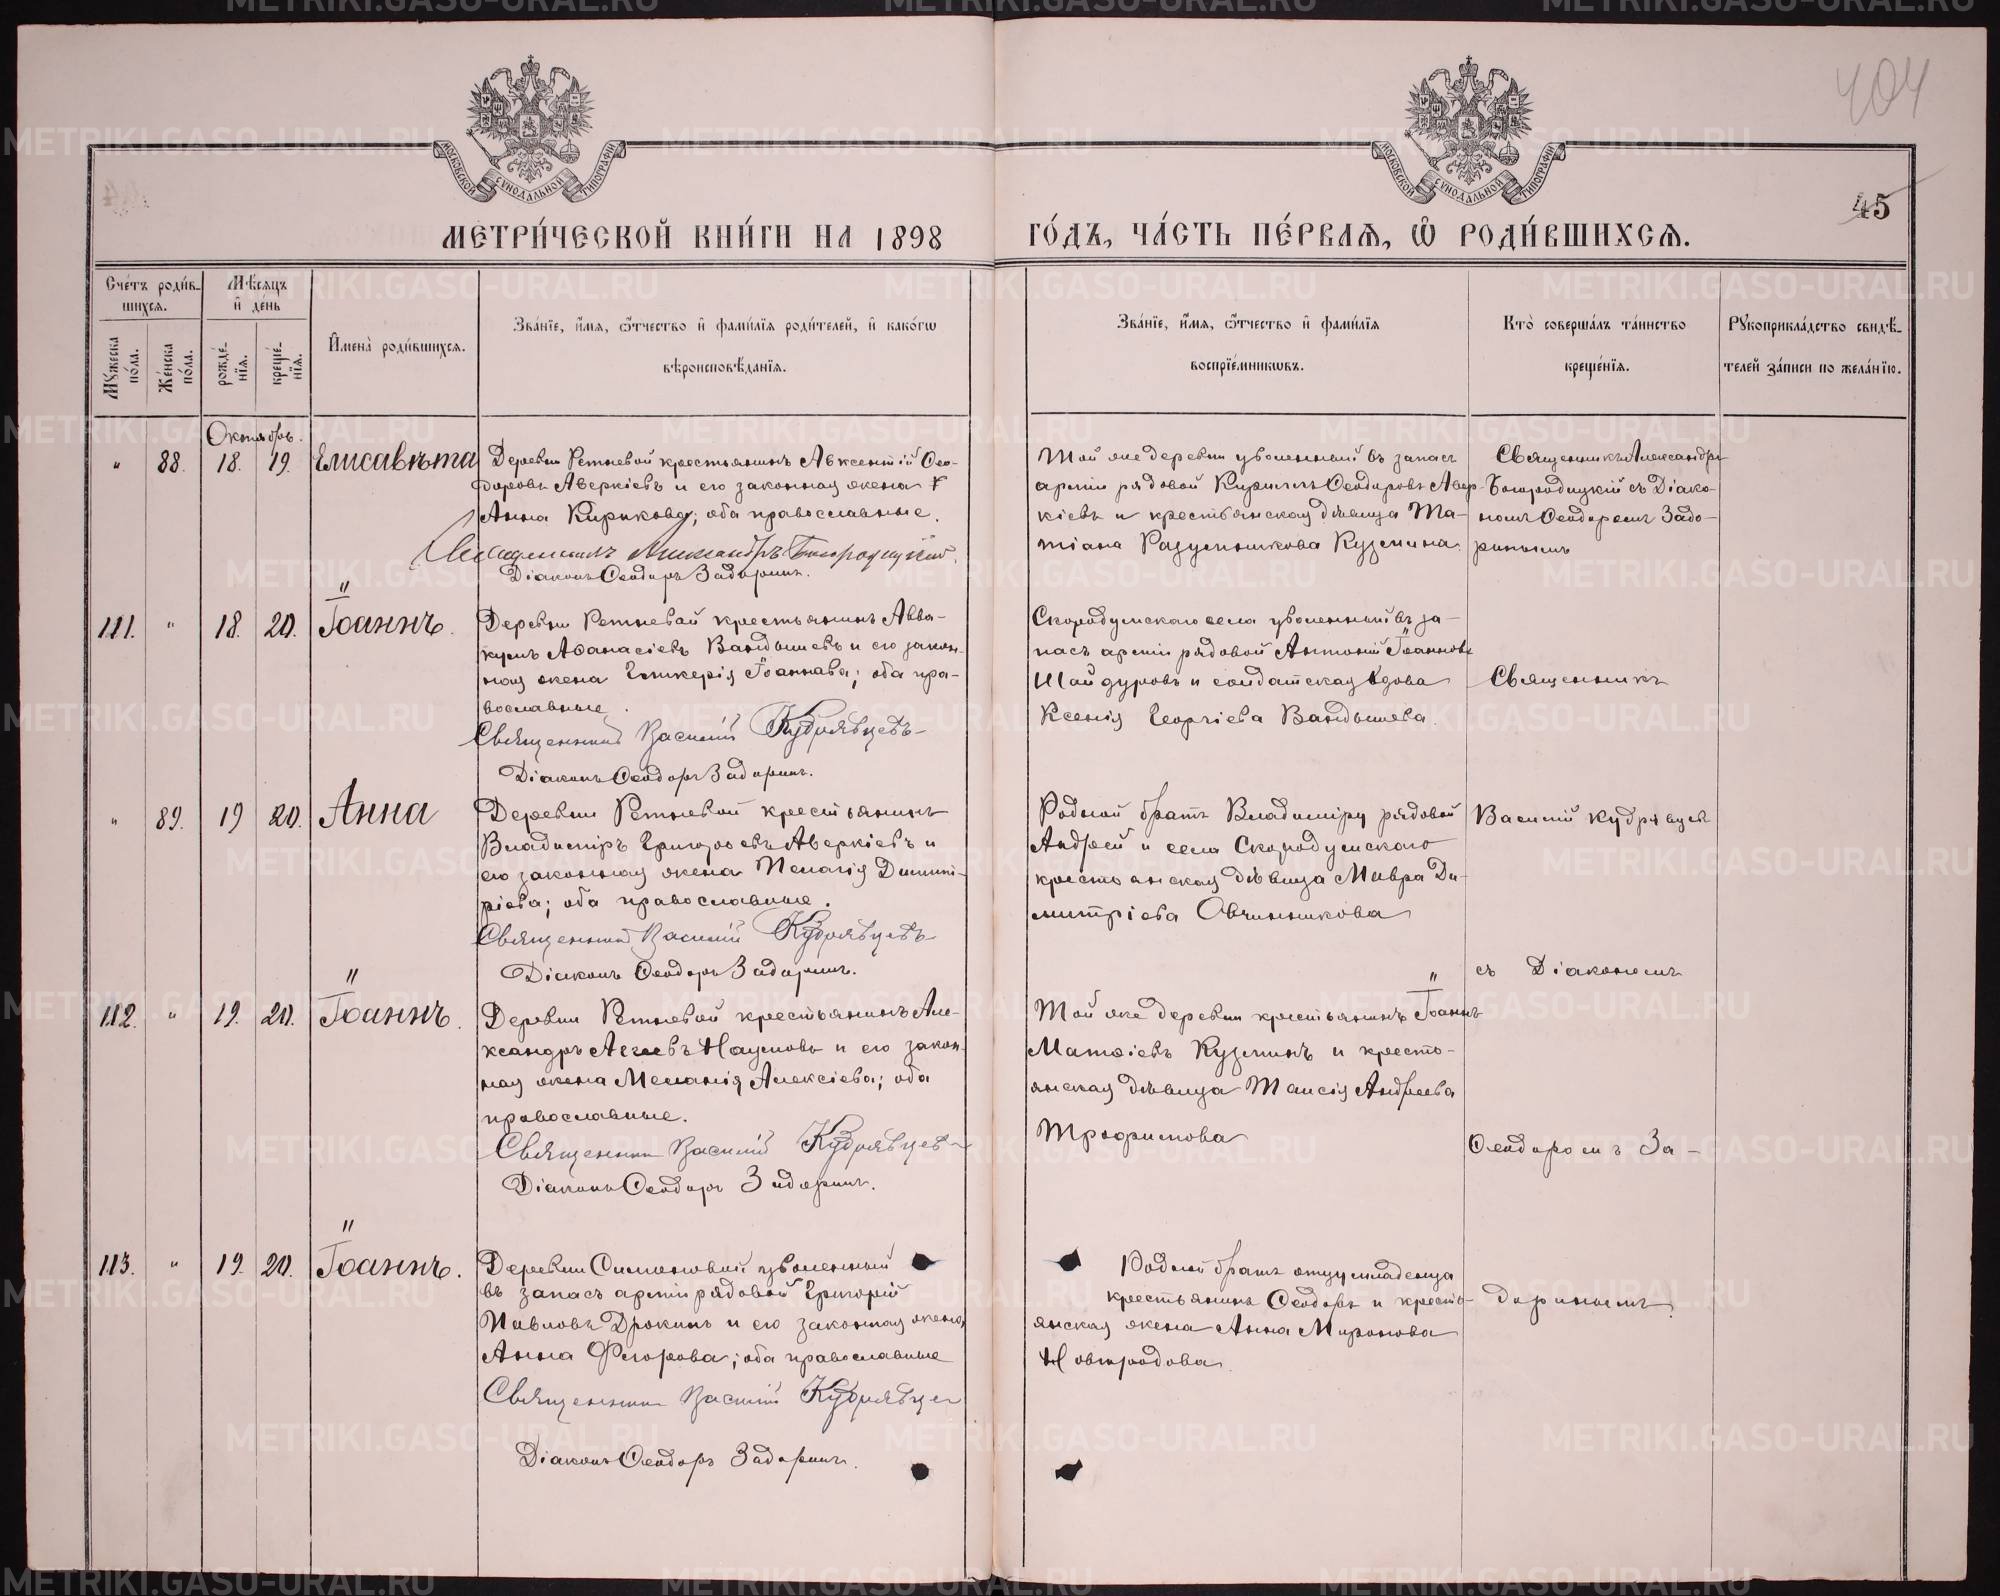 404
45
МОСКОВСКОЙ СѴНОДАЛЬНОЙ ТИПОГРАФІИ
МОСКОВСКОЙ СѴНОДАЛЬНОЙ ТИПОГРАФІИ
МЕТРИ́ЧЕСКОЙ КНИ́ГИ НА 1898
ГО́ДЪ, ЧА́СТЬ ПЕ́РВАѦ, Ѡ҆ РОДИ́ВШИХСѦ.
Сче́тъ роди́в-
шихсѧ.
Мѣ́сѧцъ
и҆ де́нь
Мꙋ́жеска по́ла.
Же́нска по́ла.
рожде́-
нїѧ.
креще́-
нїѧ.
И҆мена̀ роди́вшихсѧ.
Зва́нїе, и҆́мѧ, ѻ҆́тчество и҆ фами́лїѧ роди́телей, и҆ како́гѡ
вѣроисповѣ́данїѧ.
Зва́нїе, и҆́мѧ, ѻ҆́тчество и҆ фами́лїѧ
воспрїе́мникѡвъ.
Кто̀ соверша́лъ та́инство
креще́нїѧ.
Рꙋкоприкла́дство свидѣ́-
телей за́писи по жела́нїю.
Октябрь.
" 88. 18. 19. Елисавѣта
Деревни Ретневой крестьянинъ Авксентій Ѳео-
доровъ Аверкіевъ и его законная жена
Анна Кирикова; оба православные.
Священникъ Александръ Богородицкій.
Діаконъ Ѳеодоръ Задоринъ.
Той же деревни уволенный въ запасъ
арміи рядовой Кириллъ Ѳеодоровъ Авер-
кіевъ и крестьянская дѣвица Та-
тіана Разумникова Кузмина
Священникъ Александръ
Богородицкій съ Діако-
номъ Ѳеодоромъ Задо-
ринымъ
111. " 18. 20. Іоаннъ.
Деревни Ретневой крестьянинъ Авва-
кумъ Аѳанасіевъ Вандышевъ и его закон-
ная жена Гликерія Іоаннова; оба пра-
вославные.
Священникъ Василій Кудрявцевъ
Діаконъ Ѳеодоръ Задоринъ.
Скородумскаго села уволенный въ за-
пасъ арміи рядовой Антоній Іоанновъ
Шайдуровъ и солдатская вдова
Ксенія Георгіева Вандышева.
Священникъ
" 89. 19 20. Анна
Деревни Ретневой крестьянинъ
Владиміръ Григорьевъ Аверкіевъ и
его законная жена Пелагія Димит-
ріева; оба православные.
Священникъ Василій Кудрявцевъ
Діаконъ Ѳеодоръ Задоринъ.
Родной братъ Владиміру рядовой
Андрей и села Скородумскаго
крестьянская дѣвица Мавра Ди-
митріева Овчинникова
Василій Кудрявцевъ
съ Діакономъ
112. " 19. 20. Іоаннъ.
Деревни Ретневой крестьянинъ Але-
ксандръ Наумовъ и его закон-
ная жена Меланія Алексіева; оба
православные.
Священникъ Василій Кудрявцевъ
Діаконъ Ѳеодоръ Задоринъ.
Той же деревни крестьянинъ Іоаннъ
Матѳіевъ Кузминъ и кресть-
янская дѣвица Таисія Андреева
Трофимова
Ѳеодоромъ За-
113. " 19. 20. Іоаннъ.
Деревни Симановой уволенный
въ запасъ арміи рядовой Григорій
Павловъ Дрокинъ и его законная жена
Анна Флорова; оба православные
Священникъ Василій Кудрявцевъ
Діаконъ Ѳеодоръ Задоринъ.
Родной братъ отцу младенца
крестьянинъ Ѳеодоръ и кресть-
янская жена Анна Миронова
Новгородова.
доринымъ.
METRIKI.GASO-URAL.RU